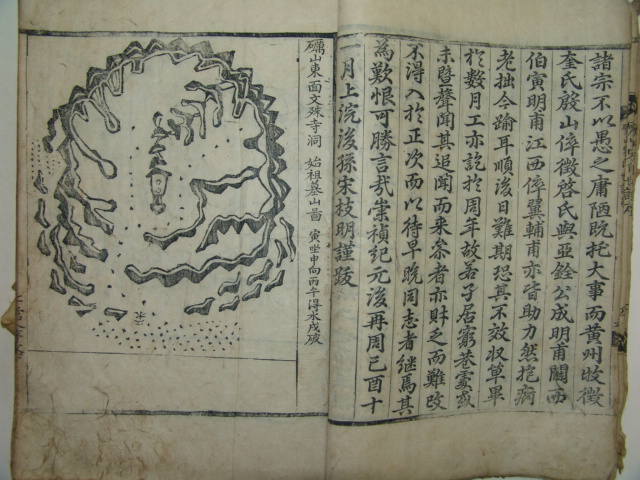 諸宗不以愚之庸陋旣托大事而黃州收徵
奎氏殷山倅徵啓氏與亞銓公成明甫關西
伯寅明甫江西倅翼輔甫亦皆助力然抱病
老拙今踰耳順後日難期恐其不效收草畢
於數月工亦訖於周年故若子居窮巷處或
未暨聲聞其追聞而來叅者亦財乏而難改
不得入於正次而以待早晩同志者継焉其
為歎恨可勝言哉崇禎紀元後再周己酉十
一月上浣後孫宋枝明謹跋
礪山東面文殊寺洞 始祖墓山啚 寅坐申向丙午得水戌破